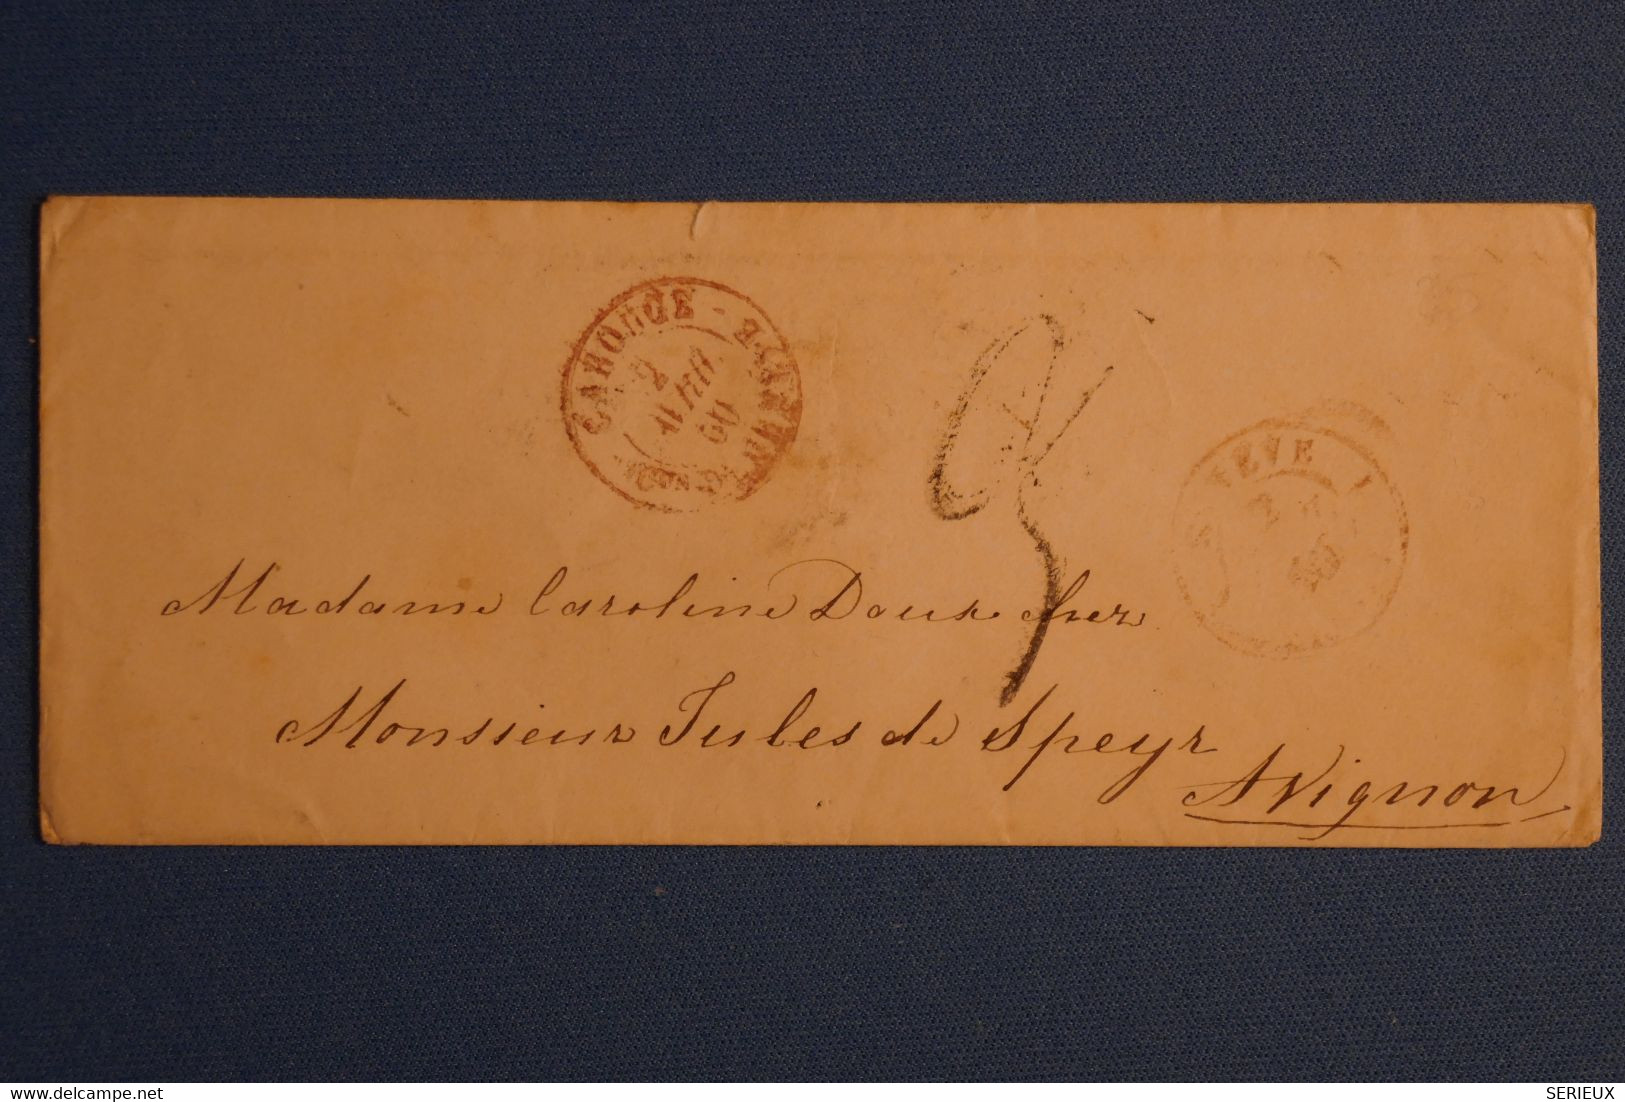 CAROUGE
2
AVRIL
60
Madame Caroline Doux cher
Monsieur Jules de Speyr
Avignon
www.delcampe.net
SERIEUX